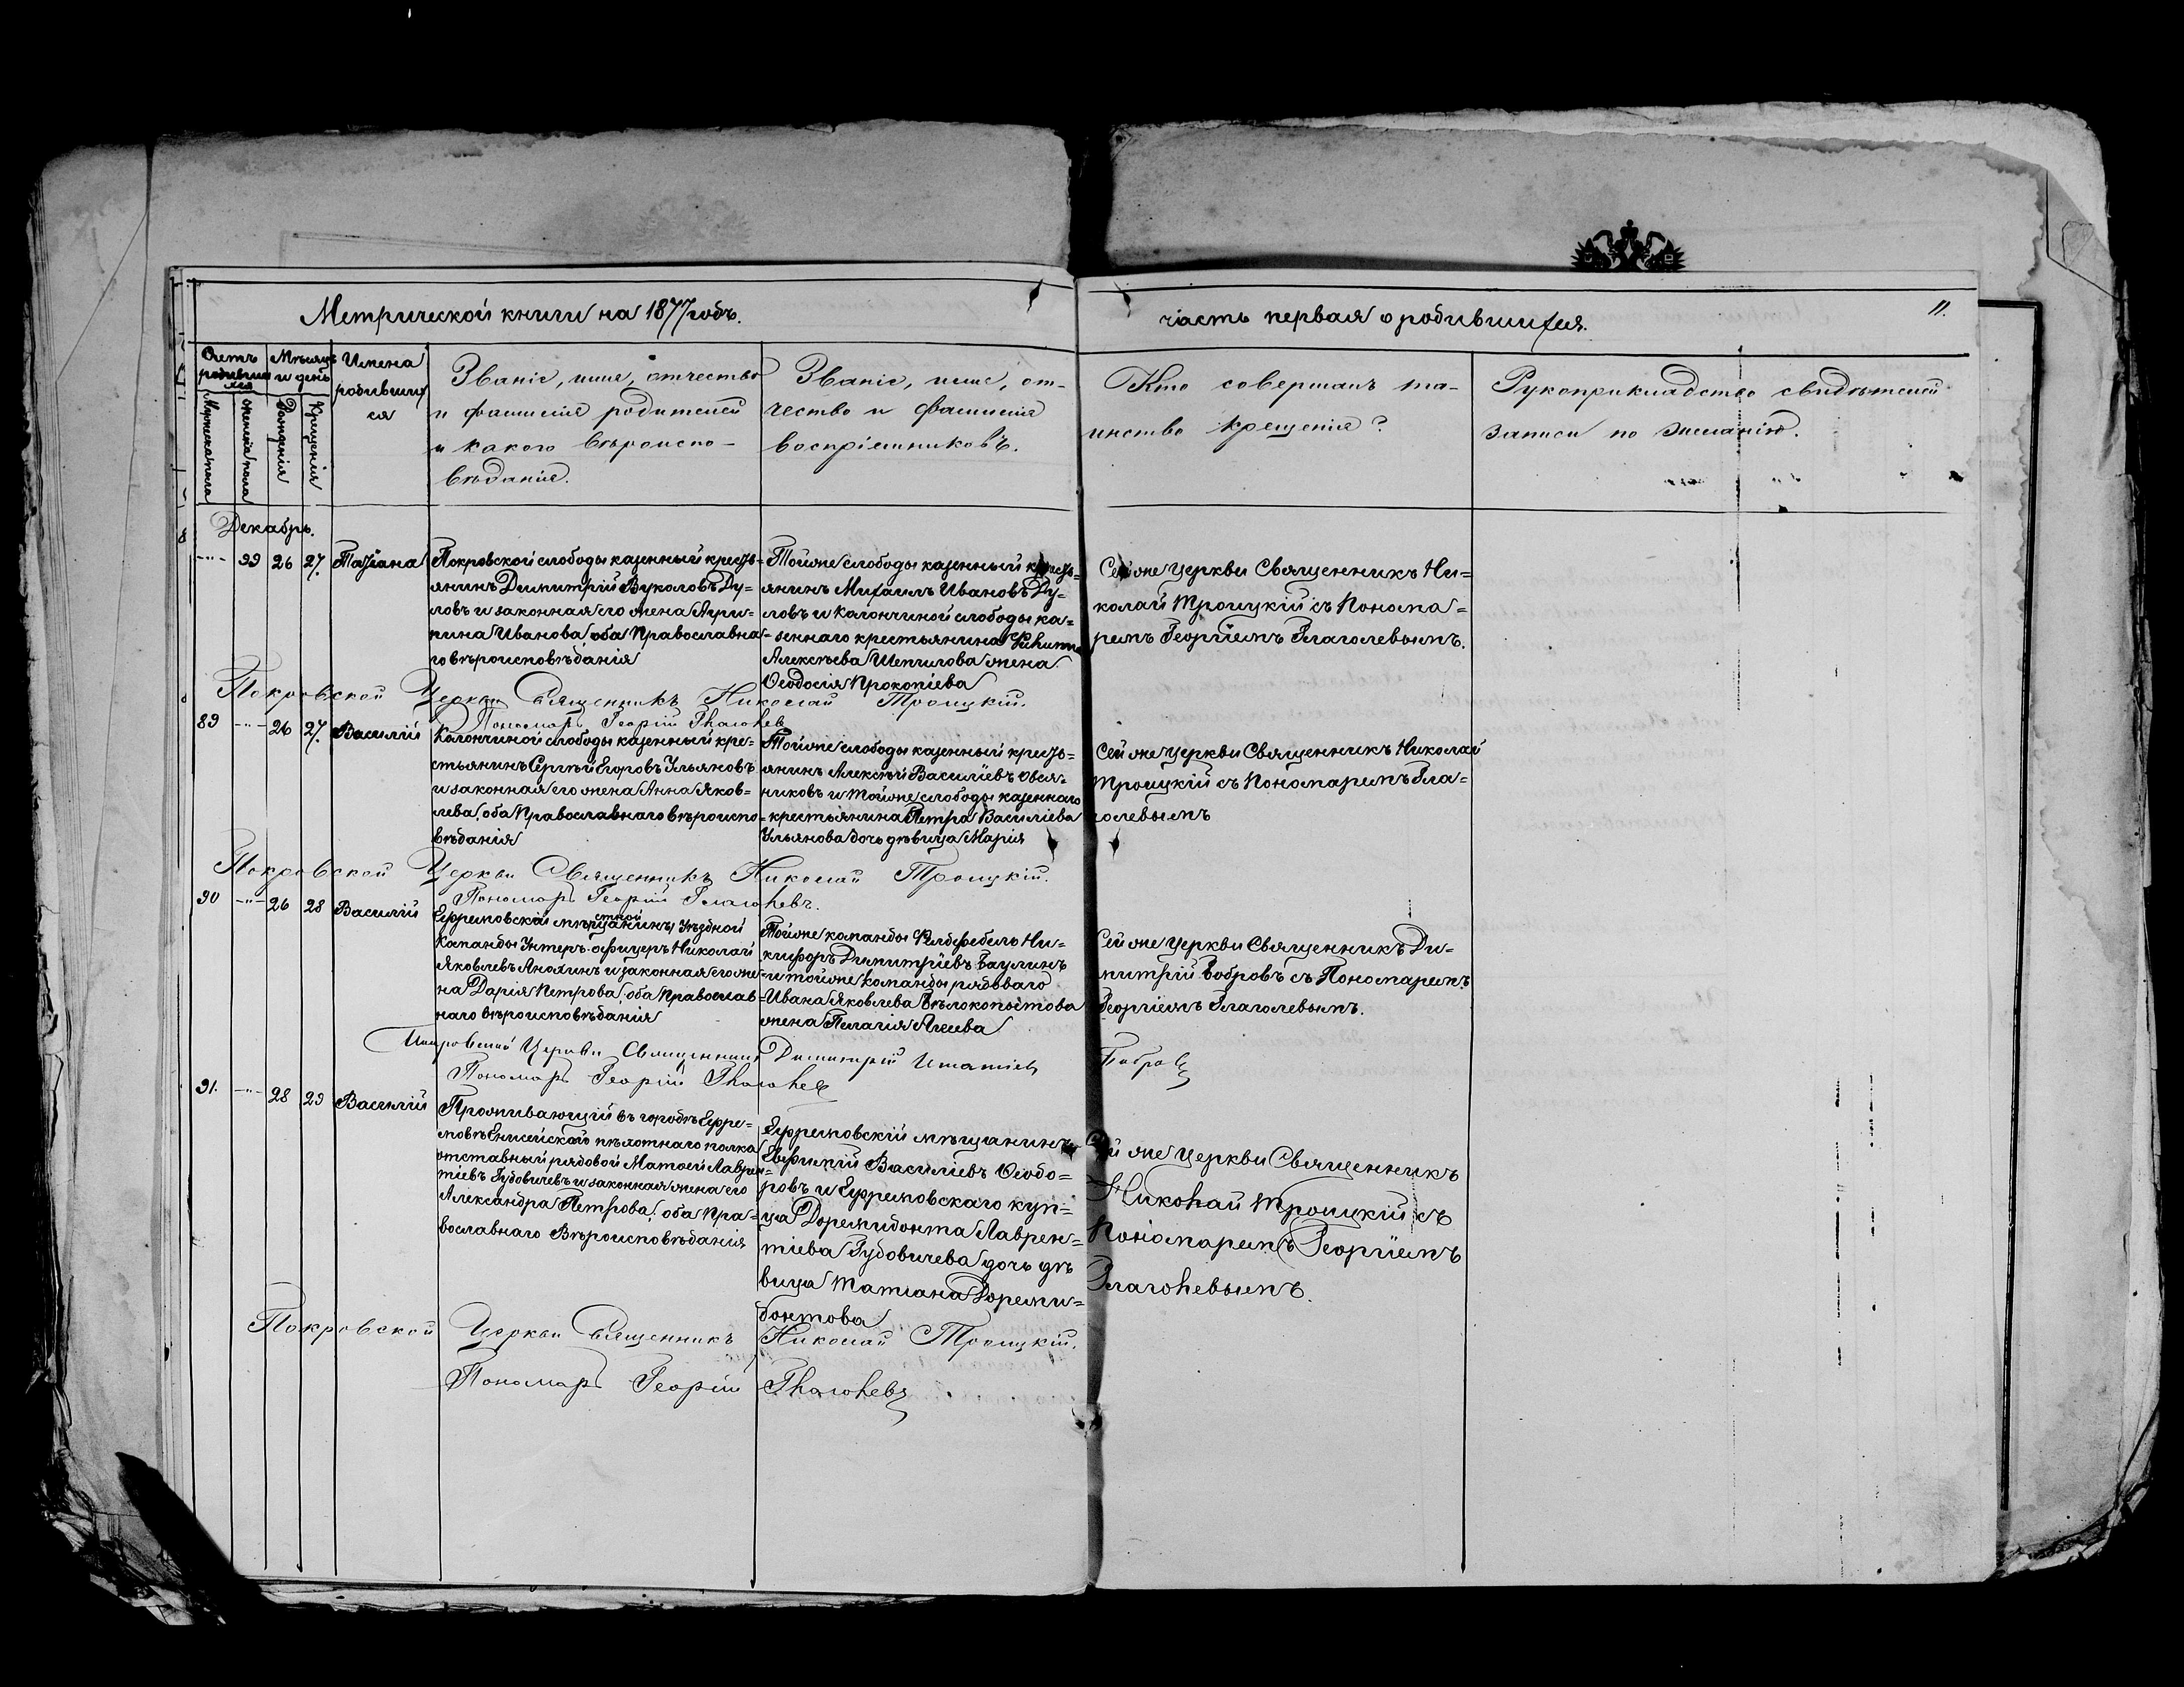 Метрической книги на 1877 годъ.
часть первая о родившихся.
11.
Счетъ родившихся
Мѣсяцъ и день
Имена родившихся
Мужеска пола
Женска пола
Рожденія
Крещенія
Званіе, имя, отчество
и фамилія родителей
и какого вѣроиспо-
вѣданія.
Званіе, имя, от-
чество и фамилія
воспріемниковъ.
Кто совершалъ та-
инство крещенія?
Рукоприкладство свидѣтелей
записи по желанію.
Декабрь.
-"- 99 26 27. Татіана
Покровской слободы казенный кресть-
янинъ Димитрій Вуколовъ Ду-
ловъ и законная его жена Агри-
пина Иванова, оба Православна-
го вѣроисповѣданія
Тойже слободы казенный кресть-
янинъ Михаилъ Ивановъ Ду-
ловъ и Калончиной слободы ка-
зеннаго крестьянина
Алексѣева Шепилова жена
Ѳеодосія Прокопіева
Сей же церкви Священникъ Ни-
колай Троицкій съ Понома-
ремъ Георгіемъ Глаголевымъ.
Покровской Церкви Священникъ Николай Троицкій.
Пономарь Георгій Глаголев
89 -"- 26 27. Василій
Калончиной слободы казенный кре-
стьянинъ Сергѣй Егоровъ Ульяновъ
и законная его жена Анна Яков-
лева, оба Православнаго вѣроиспо-
вѣданія
Тойже слободы казенный кресть-
янинъ Алексѣй Василіевъ Овся-
никовъ и тойже слободы казеннаго
крестьянина Петра Василіева
Ульянова дочь дѣвица Марія
Сей же церкви Священникъ Николай
Троицкій съ Пономаремъ Гла-
голевымъ
Покровской Церкви Священникъ Николай Троицкій.
Пономарь Георгій Глаголевъ.
90 -"- 26 28 Василій
Ефремовской мѣстной Уѣздной
Команды Унтеръ-офицеръ Николай
Яковлевъ Анохинъ и законная его же-
на Дарія Петрова, оба Православ-
наго вѣроисповѣданія
Тойже команды Фелдфебель Ни-
кифоръ Димитріевъ Баулинъ
и тойже команды рядоваго
Ивана Яковлева Бѣлокопытова
жена Пелагія Агеева
Сей же церкви Священникъ Ди-
митрій Бобровъ съ Пономаремъ
Георгіемъ Глаголевымъ.
Покровской Церкви Священник Димитрій Игнатіев Бобров
Пономарь Георгій Глаголев
91. -"- 28 29 Василій
Проживающій въ городѣ Ефре-
мовѣ Енисейскаго пѣхотнаго полка
отставный рядовой Матвей Лаврен-
тіевъ Гудовичевъ и законная жена его
Александра Петрова, оба Пра-
вославнаго Вѣроисповѣданія
Ефремовскій мѣщанинъ
Евфимій Василіевъ Ѳеодо-
ровъ и Ефремовскаго куп-
ца Доремидонта Лаврен-
тіева Гудовичева дочь дѣ
вица Татіана Дореми-
донтова
Сей же церкви Священникъ
Николай Троицкій съ
Пономаремъ Георгіемъ
Глаголевымъ.
Покровской Церкви Священникъ Николай Троицкій.
Пономарь Георгій Глаголевъ